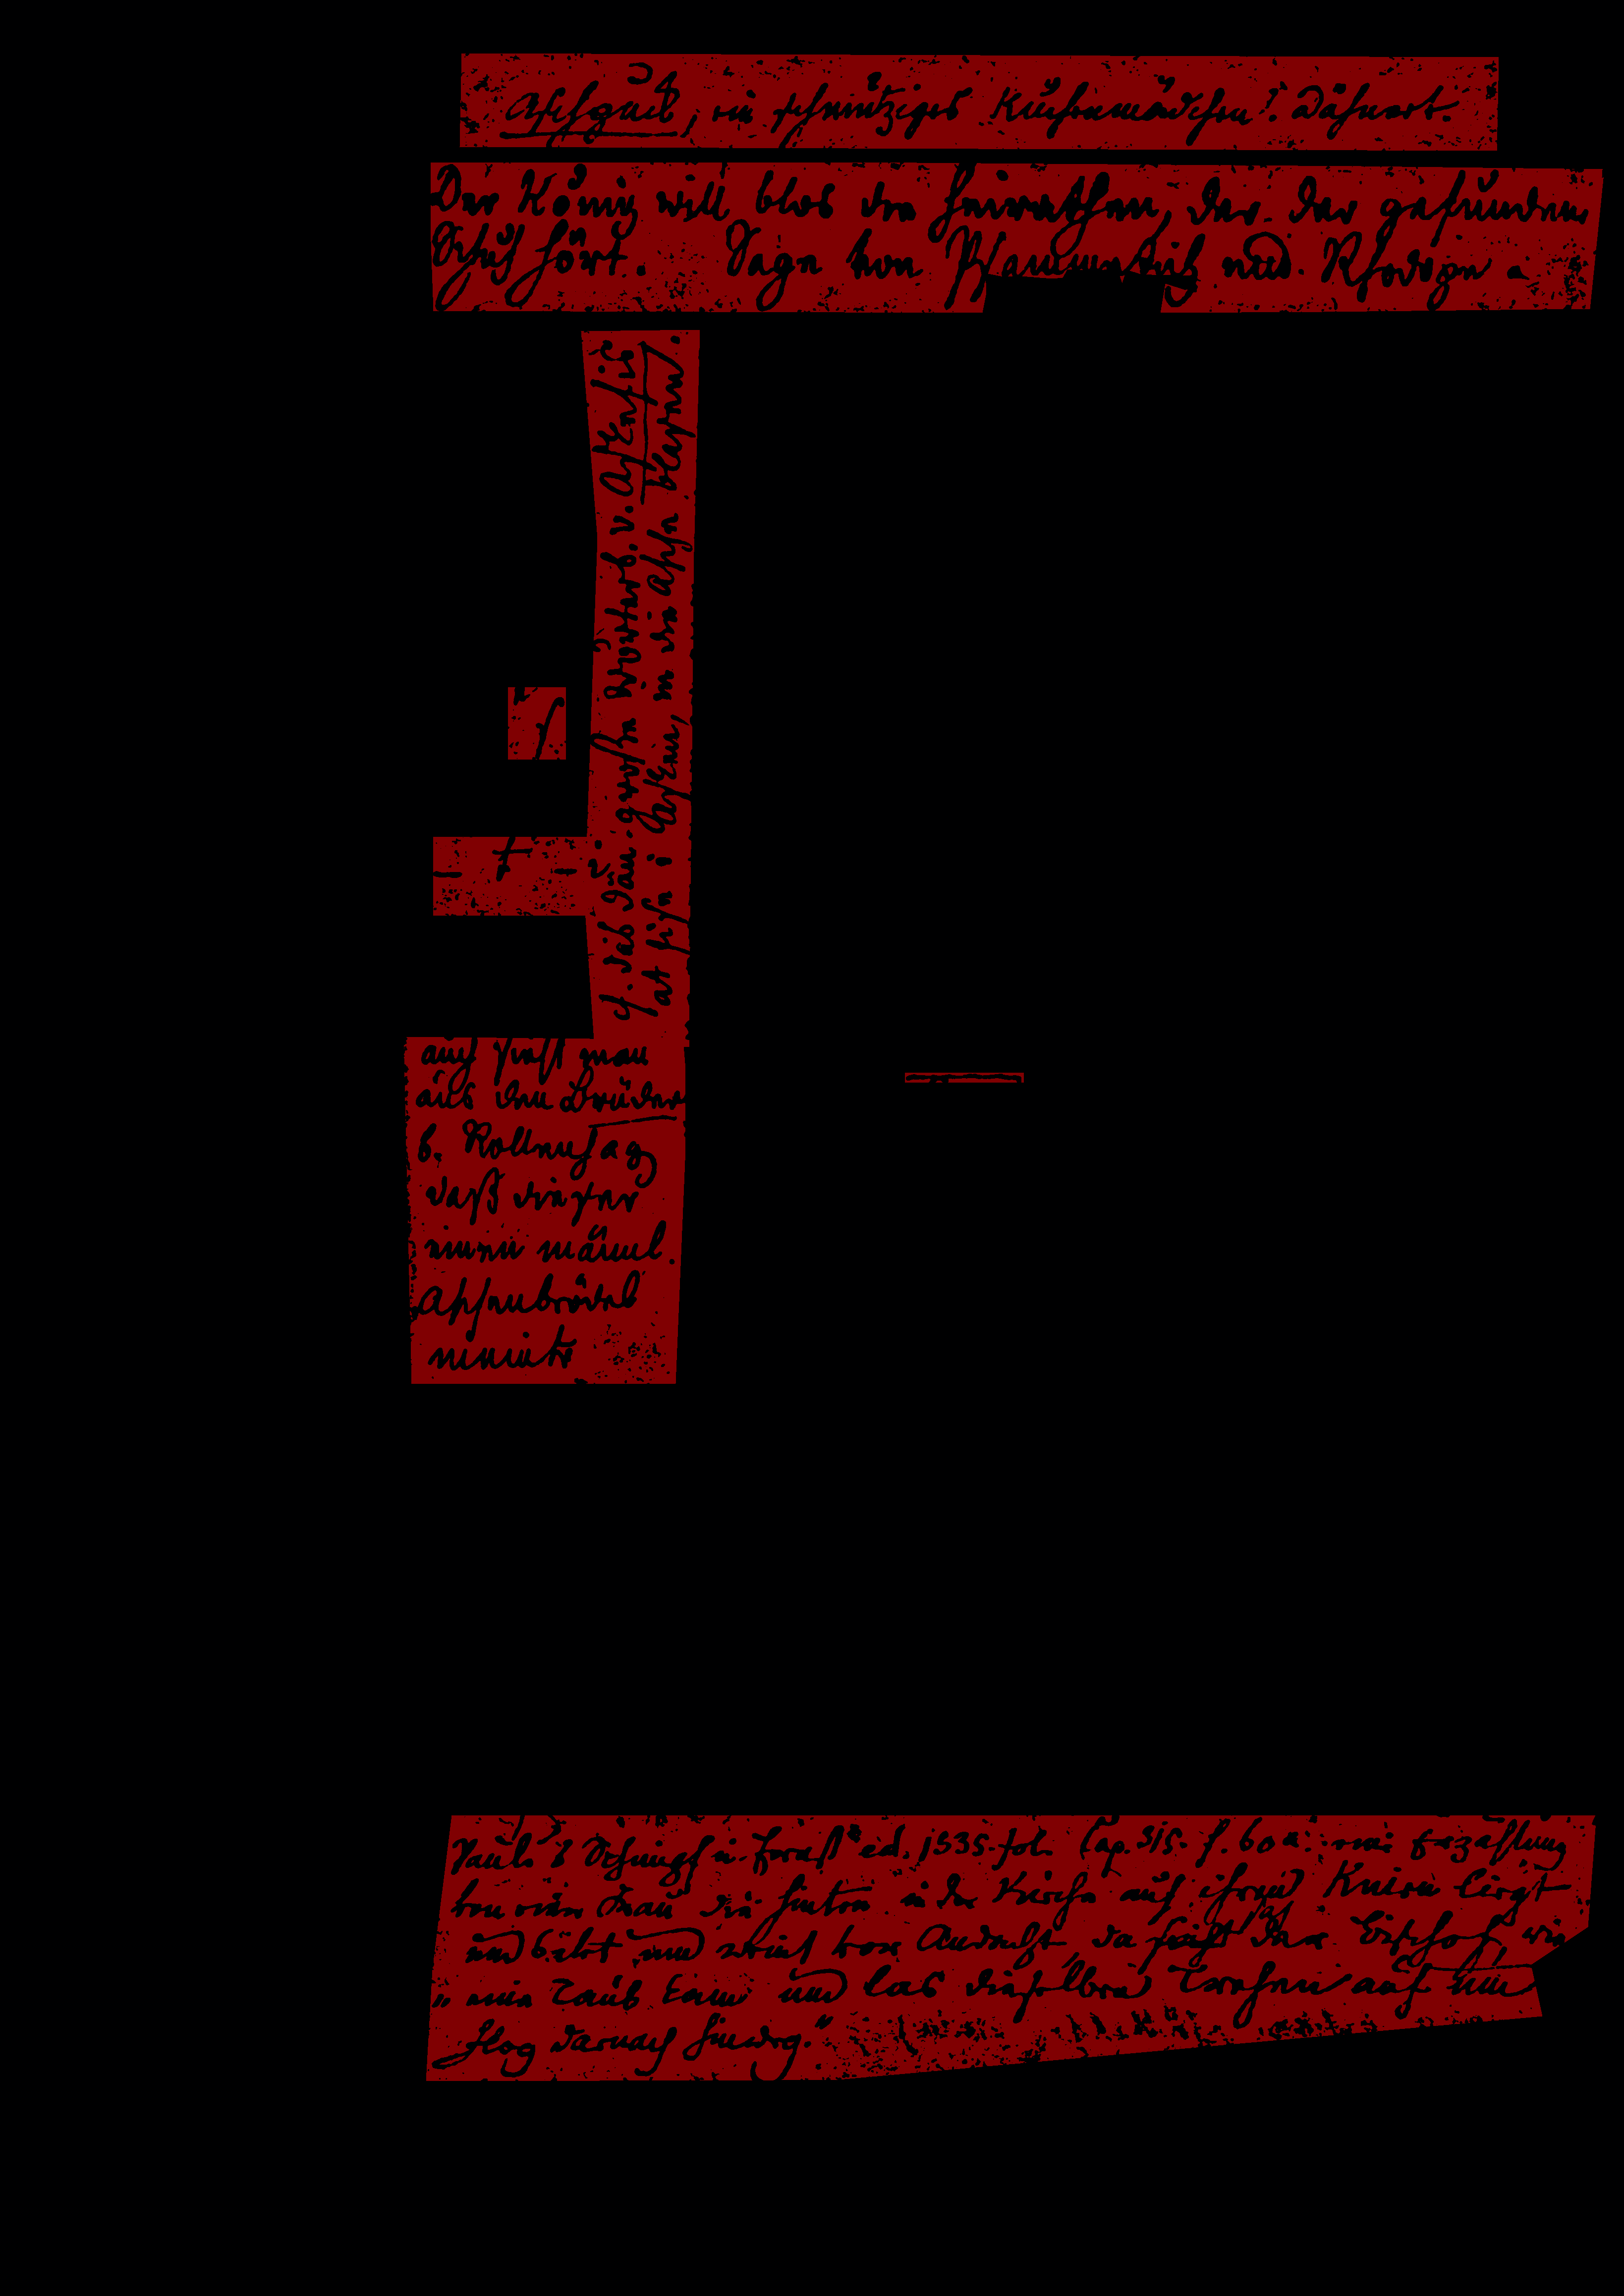 Aschgud, ein schmutziges Küchenmädchen: Dähnert.
Der König will blos die heirathen, der der gefundene
Schuh hört. Sage von Psammetich und Rhodope
cf. das dän. große Wörterb. v. Askefis
at fise i Asken, in die Asche blasen.
auch sieht man
aus den Brüder
b. Rollenhag
daß dieser
einen männl.
Aschenbrödel
meinte
Pauli's Schimpf u. Ernst ed. 1535. fol. Cap. 315. f. 60a: eine Erzählung
von einer Frau die hinten in der Kirche auf ihren Knien liegt
und betet und weint vor Andacht, da sieht der Bischof, wie
„eine Taub kam und las dieselben Trehen auf und
flog darnach hinweg."